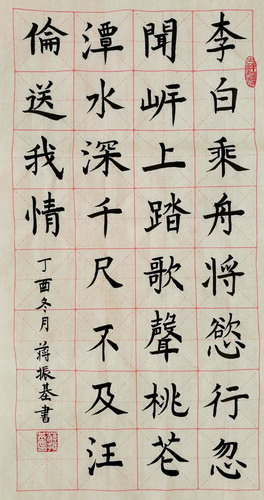 李白乘舟将慾行忽
聞岍上踏歌聲桃花
潭水深千尺不及汪
倫送我情
丁酉冬月蔣振基書